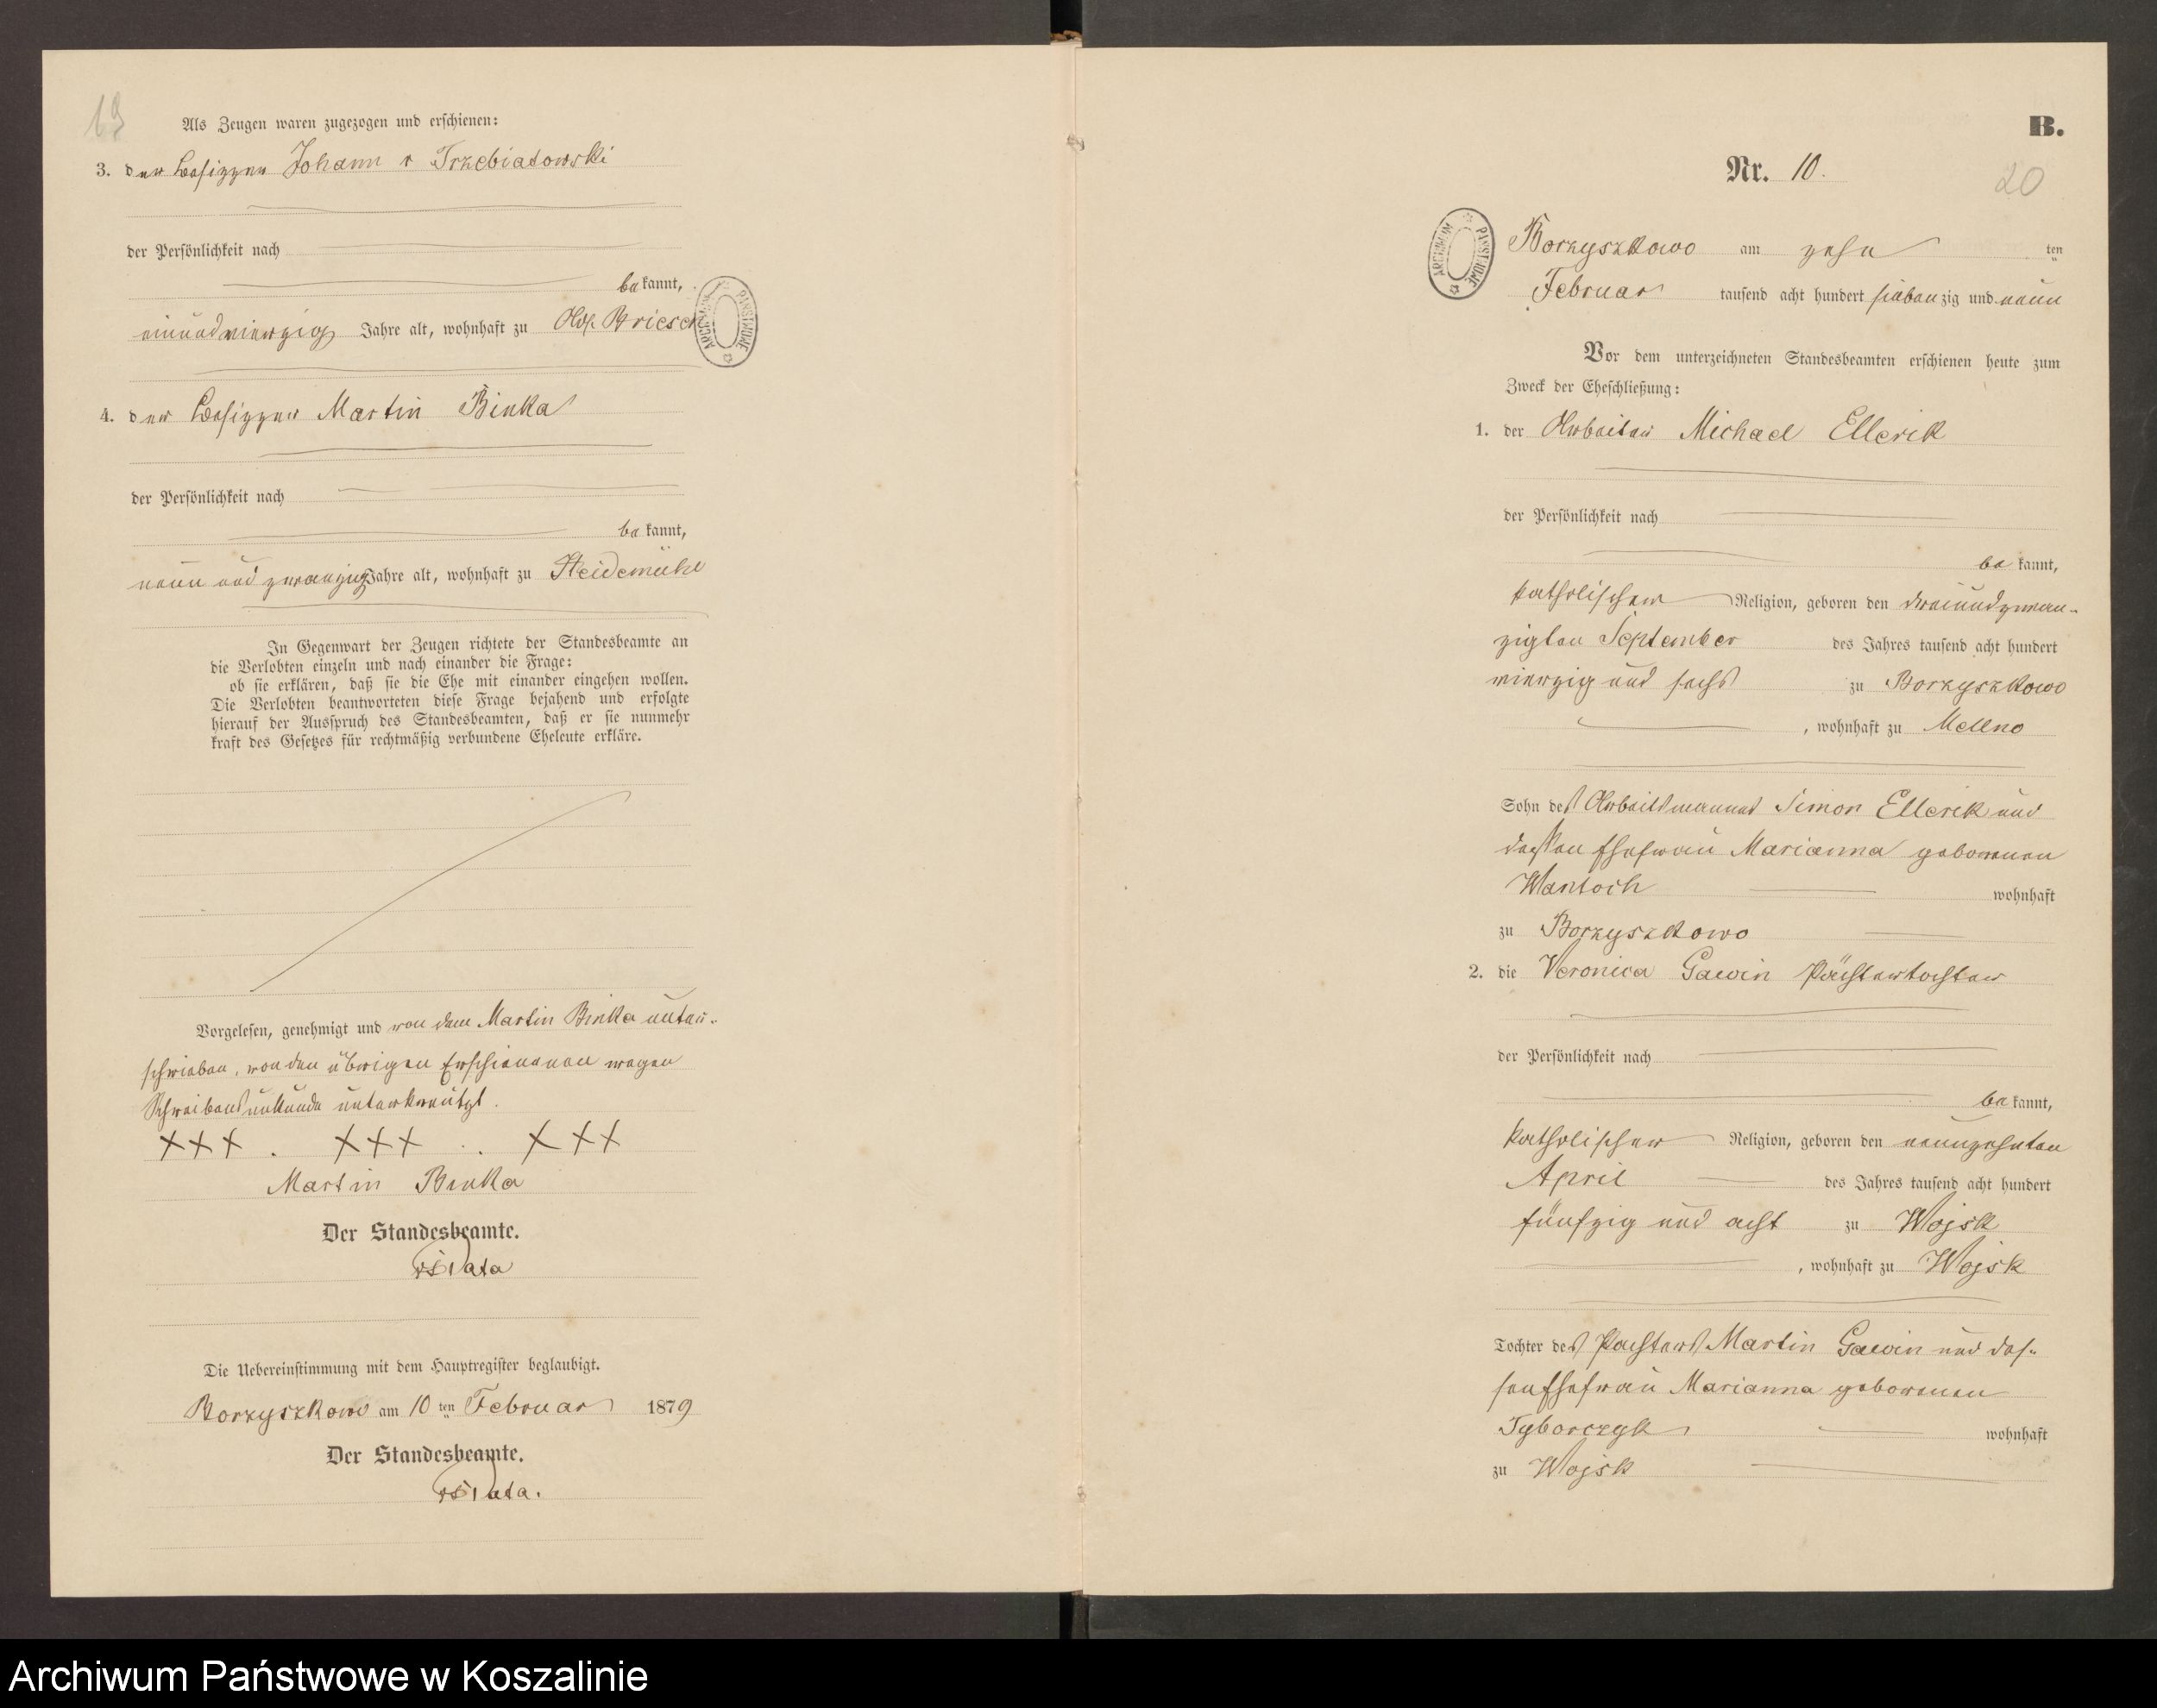 19
Als Zeugen waren zugezogen und erschienen:
3. der Besitzer Johann v Trzebiatowski
der Persönlichkeit nach
be kannt,
einundvierzig Jahre alt, wohnhaft zu Abb. Briesen
4. der Besitzer Martin Binka
der Persönlichkeit nach
be kannt,
neun und zwanzig Jahre alt, wohnhaft zu Heidemühl
In Gegenwart der Zeugen richtete der Standesbeamte an
die Verlobten einzeln und nach einander die Frage:
ob sie erklären, daß sie die Ehe mit einander eingehen wollen.
Die Verlobten beantworteten diese Frage bejahend und erfolgte
hierauf der Ausspruch des Standesbeamten, daß er sie nunmehr
kraft des Gesetzes für rechtmäßig verbundene Eheleute erkläre.
Vorgelesen, genehmigt und von dem Martin Binka unter-
schrieben, von den übrigen Erschienenen wegen
Schreibensunkunde unterkreutzt.
+++ . +++ . +++
Martin Binka
Der Standesbeamte.
Die Uebereinstimmung mit dem Hauptregister beglaubigt.
Borzyszkowo am 10 ten Februar 1879
Der Standesbeamte.
ARCHIWUM PAŃSTWOWE
B.
Nr. 10.
20
ARCHIWUM PAŃSTWOWE
Borzyszkowo am zehn ten
Februar tausend acht hundert siebenzig und neun
Vor dem unterzeichneten Standesbeamten erschienen heute zum
Zweck der Eheschließung:
1. der Arbeiter Michael Ellerik
der Persönlichkeit nach
be kannt,
katholischer Religion, geboren den dreiundzwan-
zigten September des Jahres tausend acht hundert
vierzig und sechs zu Borzyszkowo
, wohnhaft zu Mellno
Sohn des Arbeitsmannes Simon Ellerik und
dessen Ehefrau Marianna geborenen
Wantoch wohnhaft
zu Borzyszkowo
2. die Veronica Gawin Pächtertochter
der Persönlichkeit nach
be kannt,
katholischer Religion, geboren den neunzehnten
April des Jahres tausend acht hundert
fünfzig und acht zu Wojsk
, wohnhaft zu Wojsk
Tochter des Pächters Martin Gawin und des-
sen Ehefrau Marianna geborenen
Tyborczyk wohnhaft
zu Wojsk
Archiwum Państwowe w Koszalinie